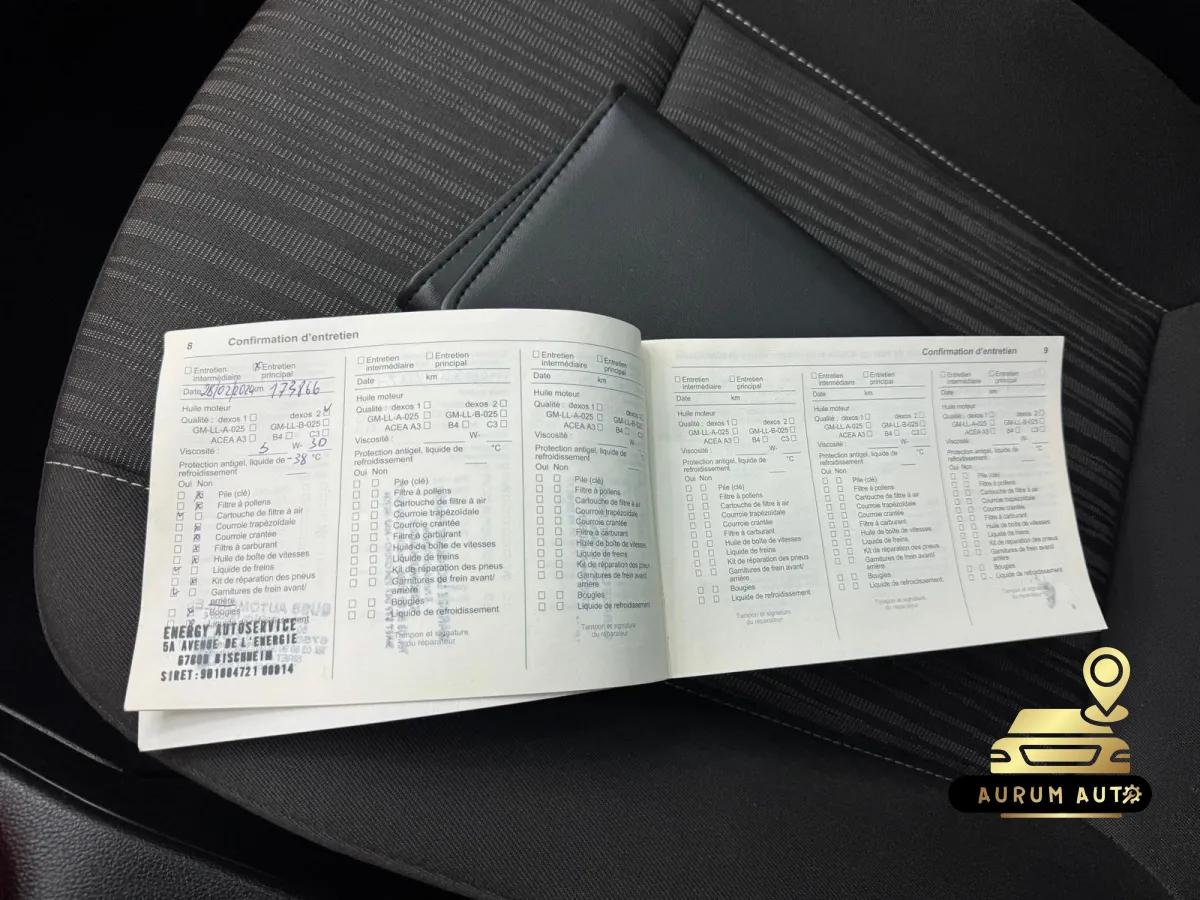 8
Confirmation d'entretien
Entretien intermédiaire
Entretien principal
Date 28/02/2024 km 173866
Huile moteur
Qualité : dexos 1 dexos 2
GM-LL-A-025 GM-LL-B-025
ACEA A3 B4 C3
Viscosité : 5 W- 30
Protection antigel, liquide de -38 °C
refroidissement
Oui Non
Pile (clé)
Filtre à pollens
Cartouche de filtre à air
Courroie trapézoïdale
Courroie crantée
Filtre à carburant
Huile de boîte de vitesses
Liquide de freins
Kit de réparation des pneus
Garnitures de frein avant/
arrière
Bougies
ENERGY AUTOSERVICE
5A AVENUE DE L'ENERGIE
67800 BISCHHEIM
SIRET:901004721 00014
Entretien intermédiaire
Entretien principal
Date km
Huile moteur
Qualité : dexos 1 dexos 2
GM-LL-A-025 GM-LL-B-025
ACEA A3 B4 C3
Viscosité : W-
Protection antigel, liquide de °C
refroidissement
Oui Non
Pile (clé)
Filtre à pollens
Cartouche de filtre à air
Courroie trapézoïdale
Courroie crantée
Filtre à carburant
Huile de boîte de vitesses
Liquide de freins
Kit de réparation des pneus
Garnitures de frein avant/
arrière
Bougies
Liquide de refroidissement
Tampon et signature
du réparateur
Entretien intermédiaire
Entretien principal
Date km
Huile moteur
Qualité : dexos 1 dexos
GM-LL-A-025 GM-LL-B-025
ACEA A3 B4 C3
Viscosité : W-
Protection antigel, liquide de °C
refroidissement
Oui Non
Pile (clé)
Filtre à pollens
Cartouche de filtre à air
Courroie trapézoïdale
Courroie crantée
Filtre à carburant
Huile de boîte de vitesses
Liquide de freins
Kit de réparation des pneus
Garnitures de frein avant/
arrière
Bougies
Liquide de refroidissement
Tampon et signature
du réparateur
Confirmation d'entretien
9
Entretien intermédiaire
Entretien principal
Date km
Huile moteur
Qualité : dexos 1 dexos 2
GM-LL-A-025 GM-LL-B-025
ACEA A3 B4 C3
Viscosité : W-
Protection antigel, liquide de °C
refroidissement
Oui Non
Pile (clé)
Filtre à pollens
Cartouche de filtre à air
Courroie trapézoïdale
Courroie crantée
Filtre à carburant
Huile de boîte de vitesses
Liquide de freins
Kit de réparation des pneus
Garnitures de frein avant/
arrière
Bougies
Liquide de refroidissement
Tampon et signature
du réparateur
Entretien intermédiaire
Entretien principal
Date km
Huile moteur
Qualité : dexos 1 dexos 2
GM-LL-A-025 GM-LL-B-025
ACEA A3 B4 C3
Viscosité : W-
Protection antigel, liquide de °C
refroidissement
Oui Non
Pile (clé)
Filtre à pollens
Cartouche de filtre à air
Courroie trapézoïdale
Courroie crantée
Filtre à carburant
Huile de boîte de vitesses
Liquide de freins
Kit de réparation des pneus
Garnitures de frein avant/
arrière
Bougies
Liquide de refroidissement
Tampon et signature
du réparateur
Entretien intermédiaire
Entretien principal
Date km
Huile moteur
Qualité : dexos 1 dexos 2
GM-LL-A-025 GM-LL-B-025
ACEA A3 B4 C3
Viscosité : W-
Protection antigel, liquide de °C
refroidissement
Oui Non
Pile (clé)
Filtre à pollens
Cartouche de filtre à air
Courroie trapézoïdale
Courroie crantée
Filtre à carburant
Huile de boîte de vitesses
Liquide de freins
Kit de réparation des pneus
Garnitures de frein avant/
arrière
Bougies
Liquide de refroidissement
Tampon et signature
du réparateur
AURUM AUTO